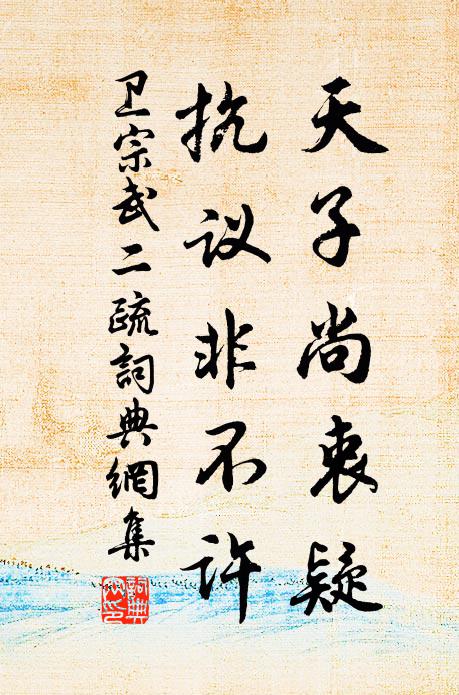 天子尚衷疑
抗议非不许
卫宗武二疏詞典網集